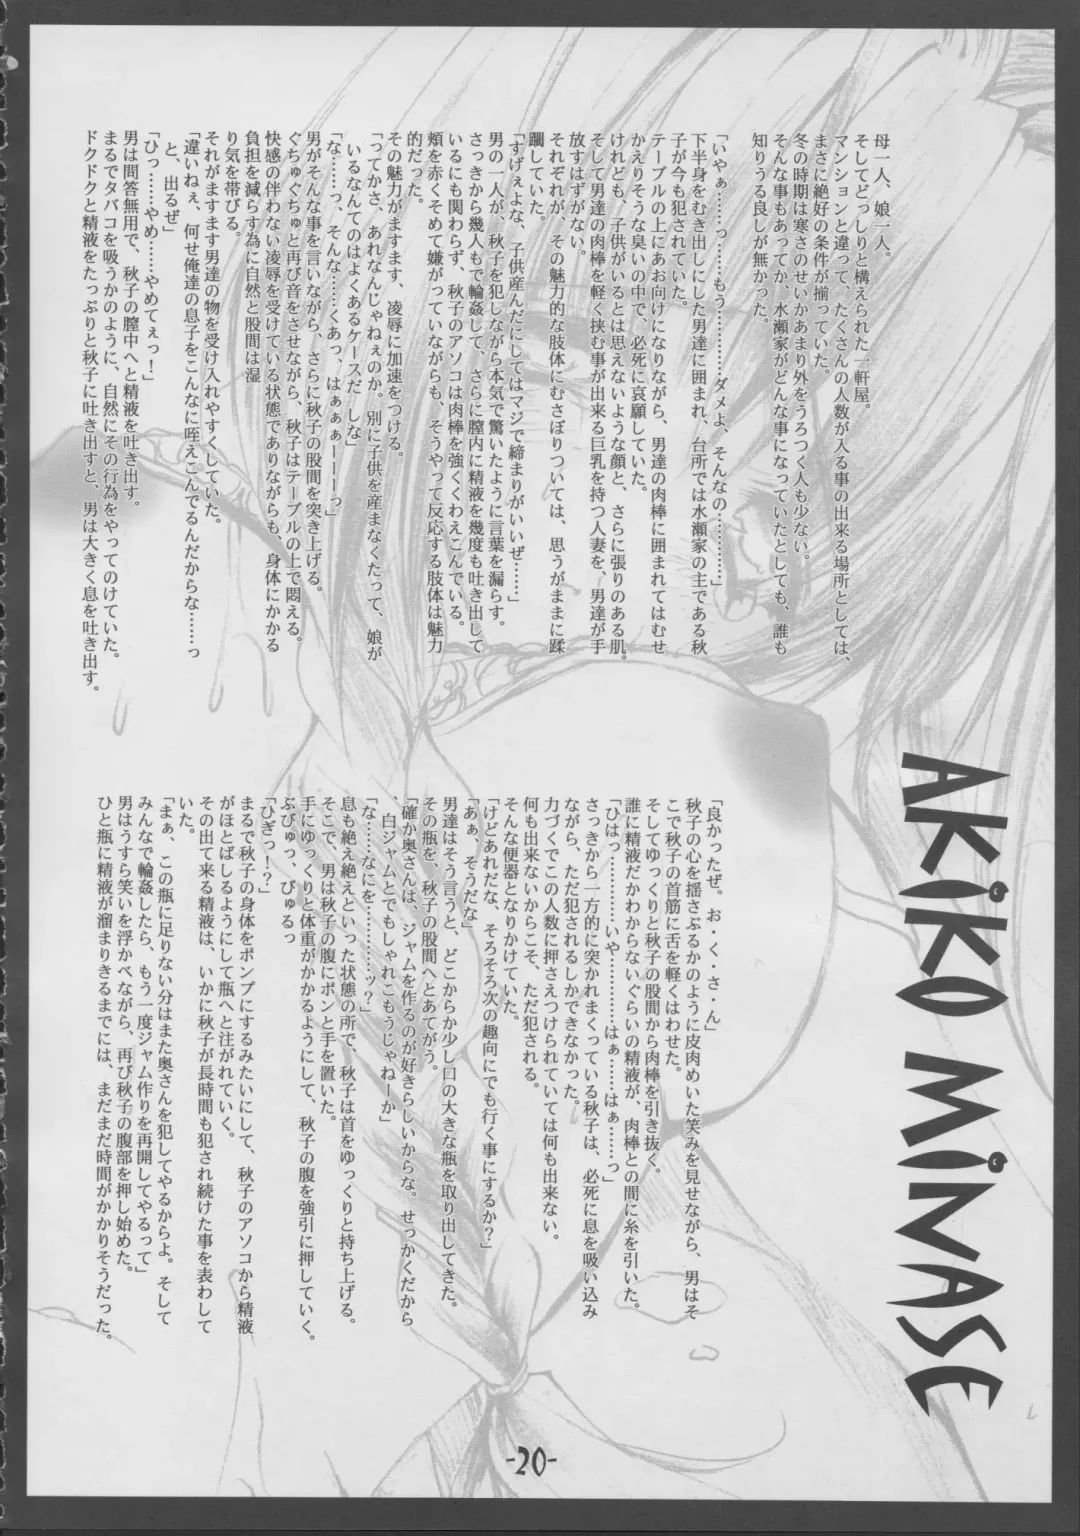 AKIKO MINASE
母一人、娘一人。
そしてどっしりと構えられた一軒屋。
マンションと違って、たくさんの人数が入る事の出来る場所としては、
まさに絶好の条件が揃っていた。
冬の時期は寒さのせいかあまり外をうろつく人も少ない。
そんな事もあってか、水瀬家がどんな事になっていたとしても、誰も
知りうる良しが無かった。
「いやぁ……っ……もう…………ダメよ、そんなの…………」
下半身をむき出しにした男達に囲まれ、台所では水瀬家の主である秋
子が今も犯されていた。
テーブルの上にあお向けになりながら、男達の肉棒に囲まれてはむせ
かえりそうな臭いの中で、必死に哀願していた。
けれども、子供がいるとは思えないような顔と、さらに張りのある肌。
そして男達の肉棒を軽く挟む事が出来る巨乳を持つ人妻を、男達が手
放すはずがない。
それぞれが、その魅力的な肢体にむさぼりついては、思うがままに蹂
躙していた。
「すげぇよな、子供産んだにしてはマジで締まりがいいぜ……」
男の一人が、秋子を犯しながら本気で驚いたように言葉を漏らす。
さっきから幾人もで輪姦して、さらに膣内に精液を幾度も吐き出して
いるにも関わらず、秋子のアソコは肉棒を強くくわえこんでいる。
頬を赤くそめて嫌がっていながらも、そうやって反応する肢体は魅力
的だった。
その魅力がますます、凌辱に加速をつける。
「ってかさ、あれなんじゃねぇのか。別に子供を産まなくたって、娘が
いるなんてのはよくあるケースだ しな」
「な……っ、そんな……くあっ、はぁぁぁーーーっ」
男がそんな事を言いながら、さらに秋子の股間を突き上げる。
ぐちゅぐちゅと再び音をさせながら、秋子はテーブルの上で悶える。
快感の伴わない凌辱を受けている状態でありながらも、身体にかかる
負担を減らす為に自然と股間は湿
り気を帯びる。
それがますます男達の物を受け入れやすくしていた。
「違いねぇ、何せ俺達の息子をこんなに咥えこんでるんだからな……っ
と、出るぜ」
「ひっ……やめ……やめてぇっ！」
男は問答無用で、秋子の膣中へと精液を吐き出す。
まるでタバコを吸うかのように、自然にその行為をやってのけていた。
ドクドクと精液をたっぷりと秋子に吐き出すと、男は大きく息を吐き出す。
「良かったぜ。お・く・さ・ん」
秋子の心を揺さぶるかのように皮肉めいた笑みを見せながら、男はそ
こで秋子の首筋に舌を軽くはわせた。
そしてゆっくりと秋子の股間から肉棒を引き抜く。
誰に精液だかわからないぐらいの精液が、肉棒との間に糸を引いた。
「ひはっ…………いや…………はぁ……はぁ……っ」
さっきから一方的に突かれまくっている秋子は、必死に息を吸い込み
ながら、ただ犯されるしかできなかった。
力づくでこの人数に押さえつけられていては何も出来ない。
何も出来ないからこそ、ただ犯される。
そんな便器となりかけていた。
「けどあれだな、そろそろ次の趣向にでも行く事にするか？」
「あぁ、そうだな」
男達はそう言うと、どこからか少し口の大きな瓶を取り出してきた。
その瓶を、秋子の股間へとあてがう。
「確か奥さんは、ジャムを作るのが好きらしいからな。せっかくだから
、白ジャムとでもしゃれこもうじゃねーか」
「な……なにを…………ッ？」
息も絶え絶えといった状態の所で、秋子は首をゆっくりと持ち上げる。
そこで、男は秋子の腹にポンと手を置いた。
手にゆっくりと体重がかかるようにして、秋子の腹を強引に押していく。
ぶびゅっ、びゅるっ
「ひぎっ！？」
まるで秋子の身体をポンプにするみたいにして、秋子のアソコから精液
がほとばしるようにして瓶へと注がれていく。
その出て来る精液は、いかに秋子が長時間も犯され続けた事を表わして
いた。
「まぁ、この瓶に足りない分はまた奥さんを犯してやるからよ。そして
みんなで輪姦したら、もう一度ジャム作りを再開してやるって」
男はうすら笑いを浮かべながら、再び秋子の腹部を押し始めた。
ひと瓶に精液が溜まりきるまでには、まだまだ時間がかかりそうだった。
-20-